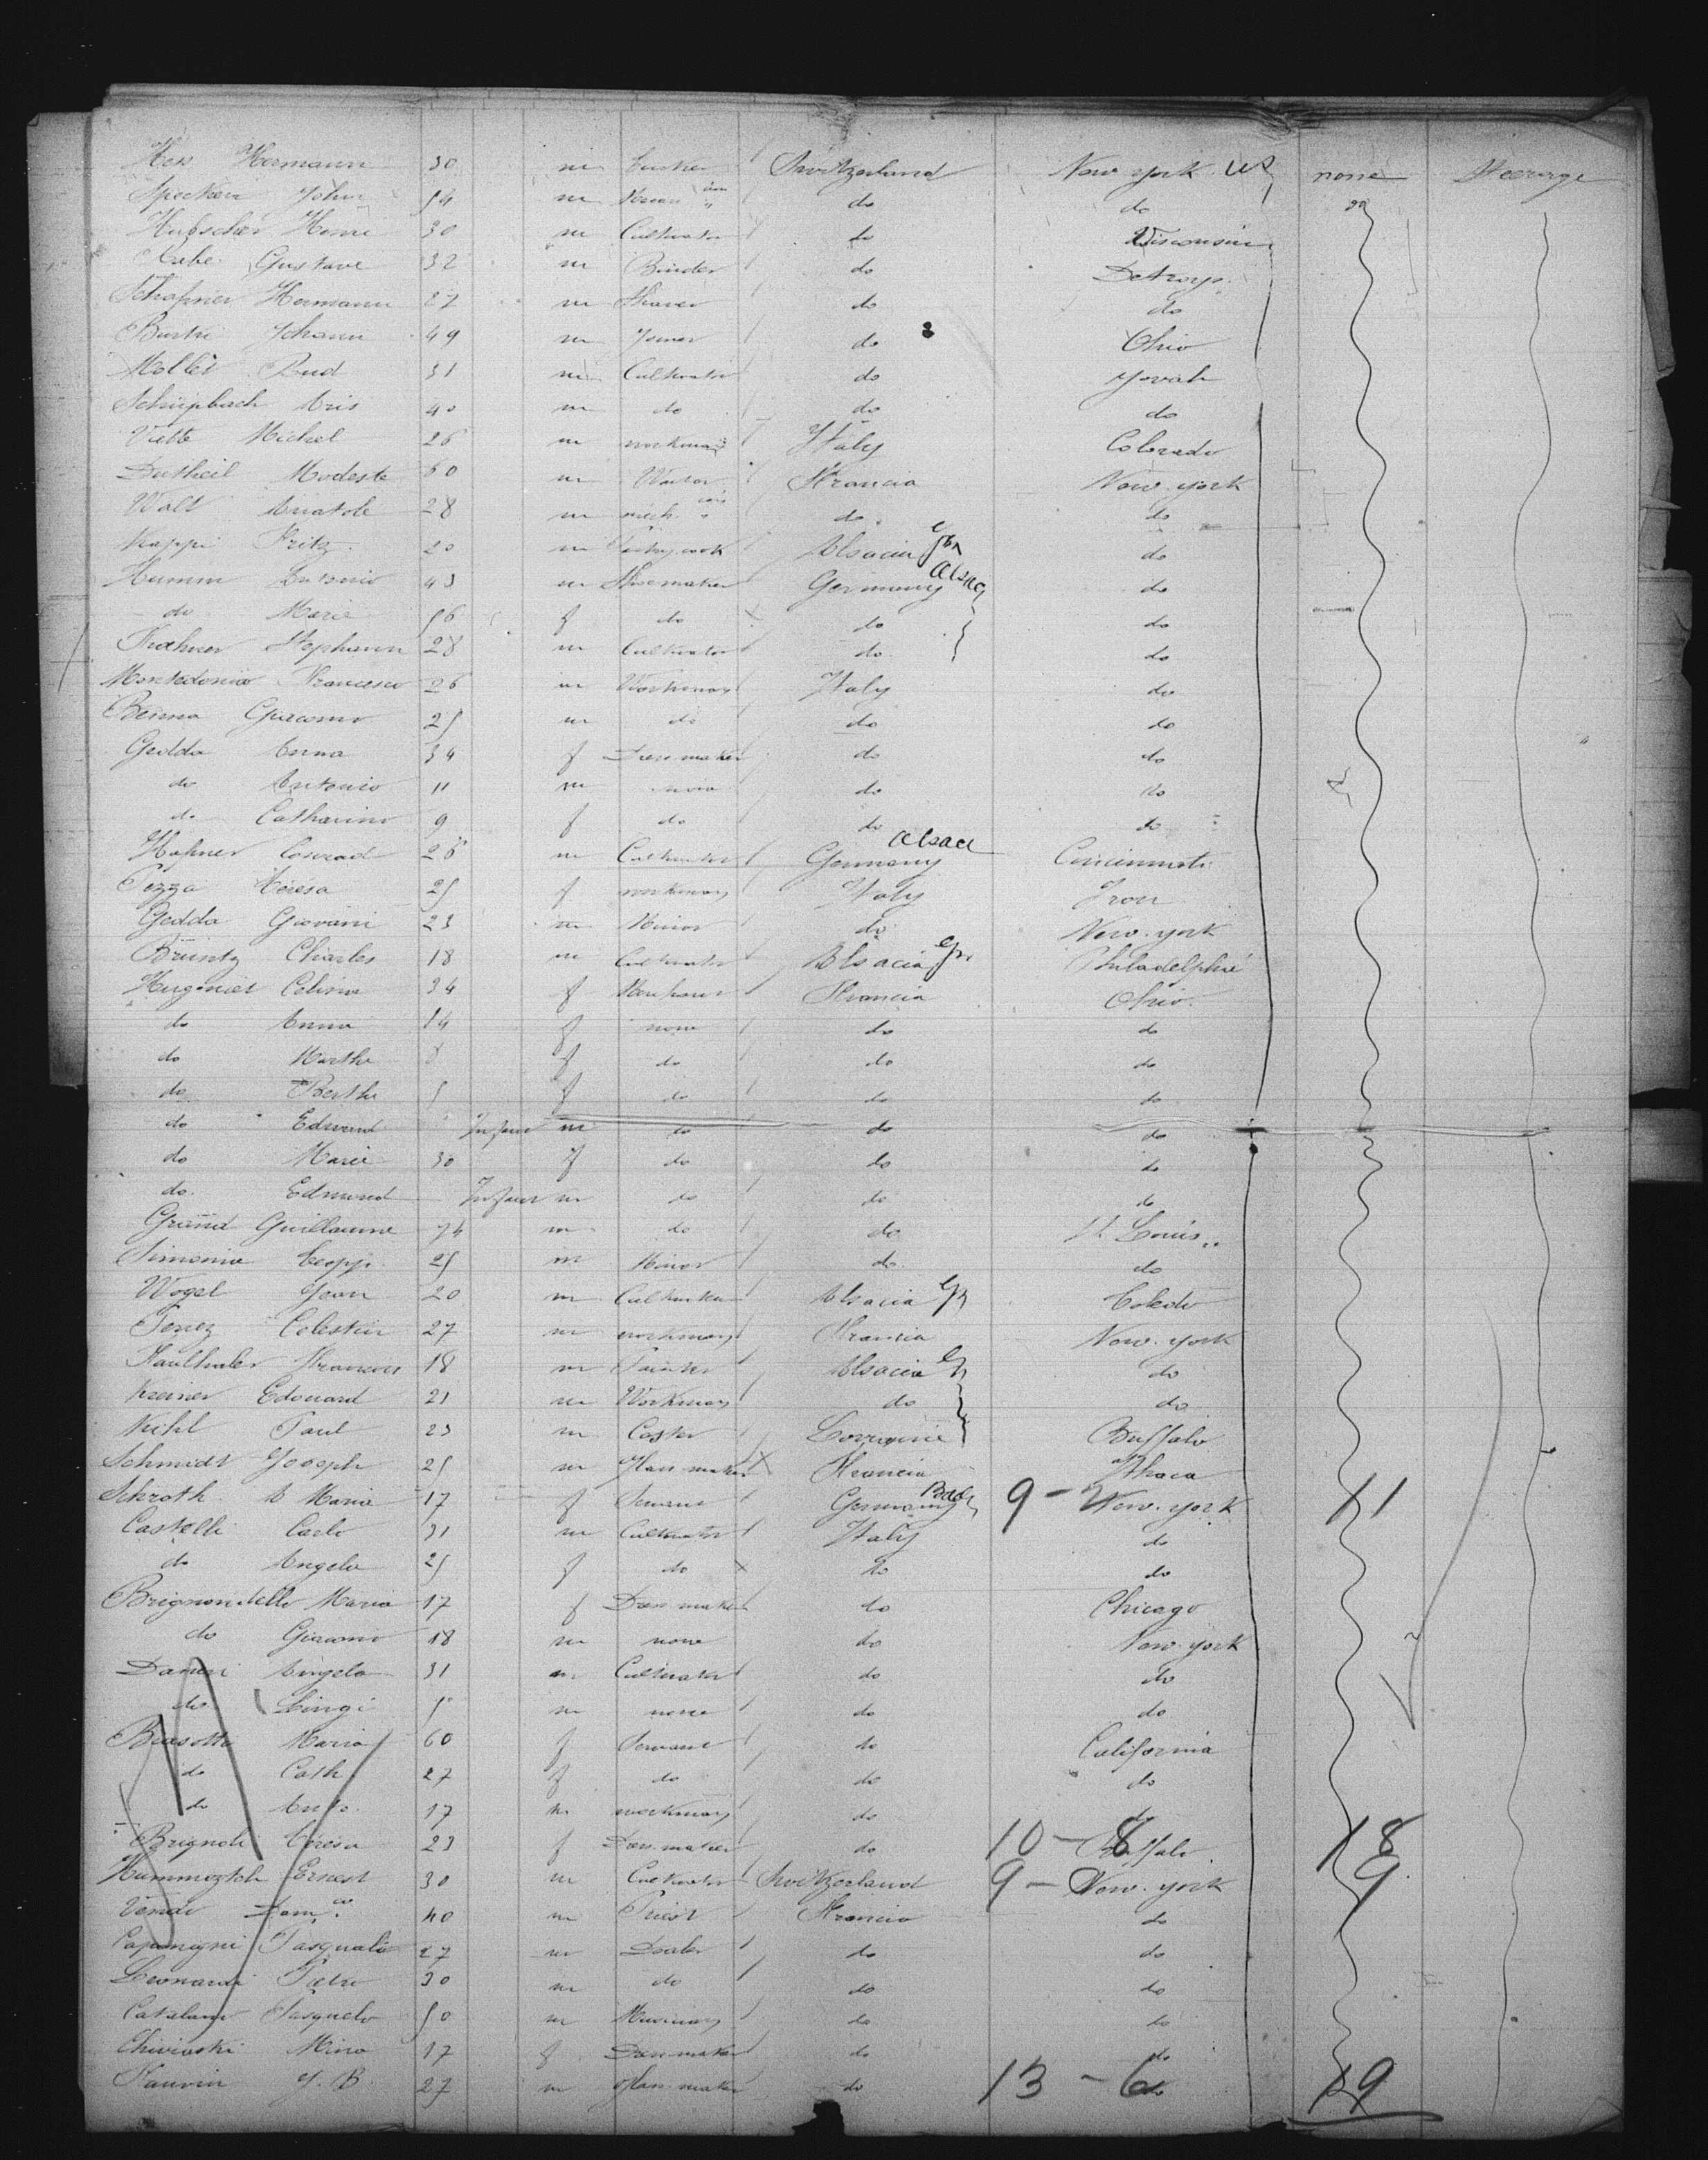 Hess Hermann 30 m Switzerland New York US none Steerage
Specker John 54 m do do
Hubscher Henri 30 m Cultivator do Wisconsin
Kube Gustave 32 m Binder do Detroys
Schafner Hermann 27 m Shaver do do
Burki Johann 49 m Joiner do Ohio
Mollet Rud 31 m Cultivator do Yovah
Schüpbach Aris 40 m do do do
Viette Michel 26 m workman Italy Colorado
Dutheil Modeste 60 m Waiter Francia New-york
Walt Anatole 28 m mech. do do
Kappi Fritz 20 m Pastrycook Alsacia Ger do
Humm Antonio 43 m Shoemaker Germany Alsac do
do Marie 56 f do do do
Stephann 28 m Cultivator do do
Montedonico Francesco 26 m Workman Italy do
Benna Giacomo 25 m do do do
Gedda Anna 34 f Dressmaker do do
do Antonio 11 m none do do
do Catharina 9 f do do do
Hafner Conrad 28 m Cultivator Germany Alsace Cincinnati
Pozza Teresa 25 f workman Italy Iron
Gedda Giovani 23 m Minor do New-york
Bruntz Charles 18 m Cultivator Alsacia Ger Philadelphie
Huginiet Celina 34 f Francia Ohio
do Anna 14 f none do do
do Marthe 8 f do do do
do Berthe 5 f do do do
do Edmond Infant m do do do
do Marie 30 f do do do
do Edmond Infant m do do do
Grand Guillaume 74 m do do St Louis
Simonia 25 m Minor do do
Wogel Jean 20 m Cultivator Alsacia Ger Toledo
Perez Celestin 27 m workman Francia New-york
Francois 18 m Painter Alsacia Ger do
Kreiner Edouard 21 m Workman do do
Kihl Paul 23 m Lorraine Buffalo
Schmidt Joseph 25 m Glass maker Francia Ithaca
Schroth A Maria 17 f Servant Germany Baden 9 - New-york 11
Castelli Carlo 31 m Cultivator Italy do
do Angela 25 f do do do
Brignondello Maria 17 f Dress maker do Chicago
do Giacomo 18 m none do New-york
Daneri Angelo 31 m Cultivator do do
do Luigi 5 m none do do
Biasotti Maria 60 f Servant do California
do Cath. 27 f do do do
do Anto. 17 m workman do do
Brignoli Teresa 23 f Dressmaker do 10 - 8 Buffalo 18
Ernest 30 m Cultivator Switzerland 9 - New-york 9
Dom.co 40 m Priest Francia do
Pasquale 27 m Dealer do do
Leonardi Pietro 30 m do do do
Catalano Pasquale 50 m Musician do do
Mina 17 f Dressmaker do do
J. B. 27 m Glass maker do 13 - 6 do 19